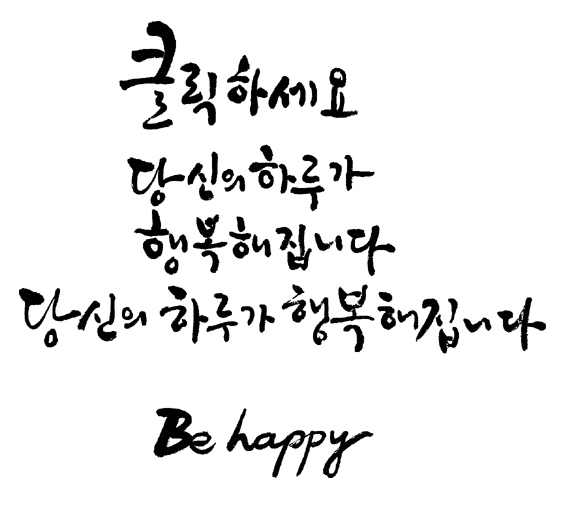 클릭하세요
당신의하루가
행복해집니다
당신의 하루가 행복해집니다
Be happy